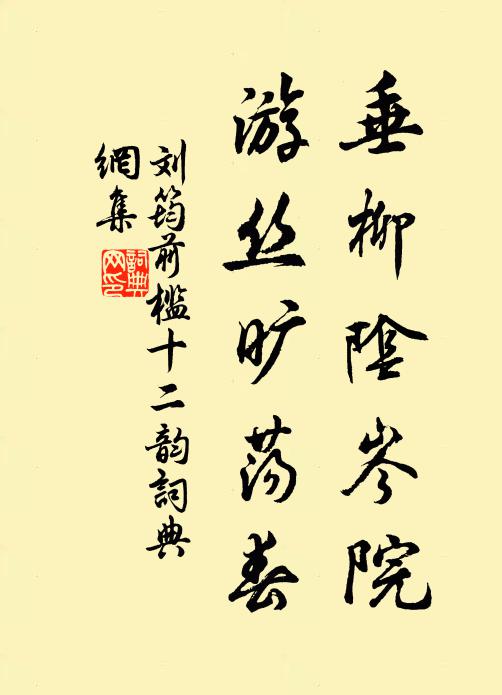 垂柳陰岑院
游丝旷荡春
刘筠前槛十二韵詞典
網集
詞典网印